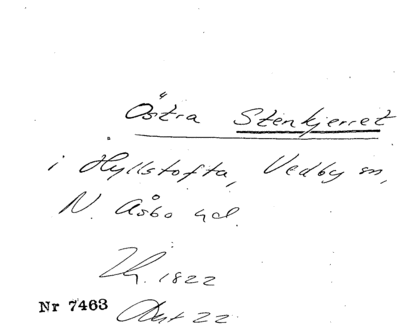 Östra Stenkjerret
i Hyllstofta, Vedby sn,
N. Åsbo hd.
1822
Nr 7463
Akt 22